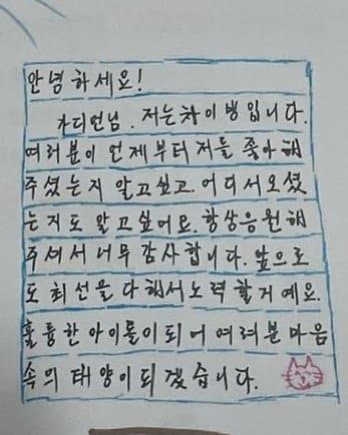 안녕하세요!
가디언님. 저는 차이밍입니다.
여러분이 언제부터 저를 좋아해
주셨는지 알고싶고. 어디서오셨
는지도 알고싶어요. 항상응원해
주셔서 너무 감사합니다. 앞으로
도 최선을 다해서 노력할거예요.
훌륭한 아이돌이 되어 여러분 마음
속의 태양이되겠습니다.